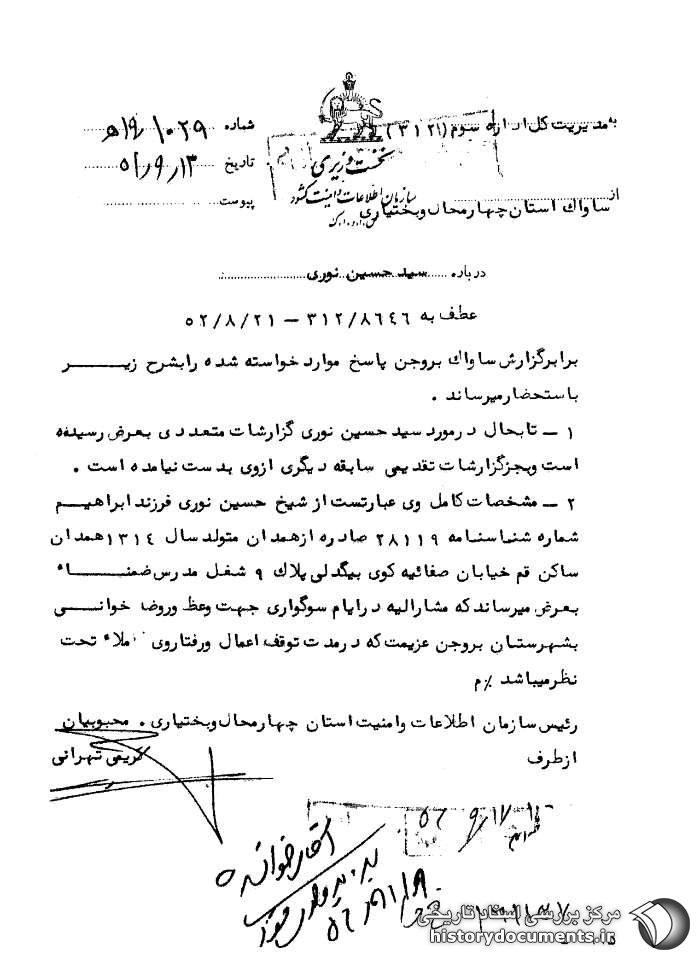 به مدیریت کل اداره سوم (۳۱۲۱)
شماره ۱۰۲۹/۱۹ه‍
نخست وزیری
تاریخ ۵۲/۹/۱۳
سازمان اطلاعات و امنیت کشور
از ساواك استان چهارمحال وبختیاری
پیوست
درباره سید حسین نوری
عطف به ۳۱۲/۸۶۴۶ – ۵۲/۸/۲۱
برابرگزارش ساواك بروجن پاسخ موارد خواسته شده رابشرح زیر
باستحضارمیرساند .
۱ – تابحال درمورد سید حسین نوری گزارشات متعددی بعرض رسیده
است وبجزگزارشات تقدیمی سابقه دیگری ازوی بدست نیامده است .
۲ – مشخصات کامل وی عبارتست از شیخ حسین نوری فرزند ابراهیم
شماره شناسنامه ۲۸۱۱۹ صادره ازهمدان متولد سال ۱۳۱٤ همدان
ساکن قم خیابان صفائیه کوی بیگدلی پلاك ۹ شغل مدرس ضمناً
بعرض میرساند که مشارالیه درایام سوگواری جهت وعظ وروضه خوانی
بشهرستان بروجن عزیمت که درمدت توقف اعمال ورفتاروی کاملاً تحت
نظرمیباشد ٪م
رئیس سازمان اطلاعات وامنیت استان چهارمحال وبختیاری . محبوبیان
ازطرف
کریمی تهرانی
۵۲/۹/۱۷
مرکز بررسی اسناد تاریخی
historydocuments.ir